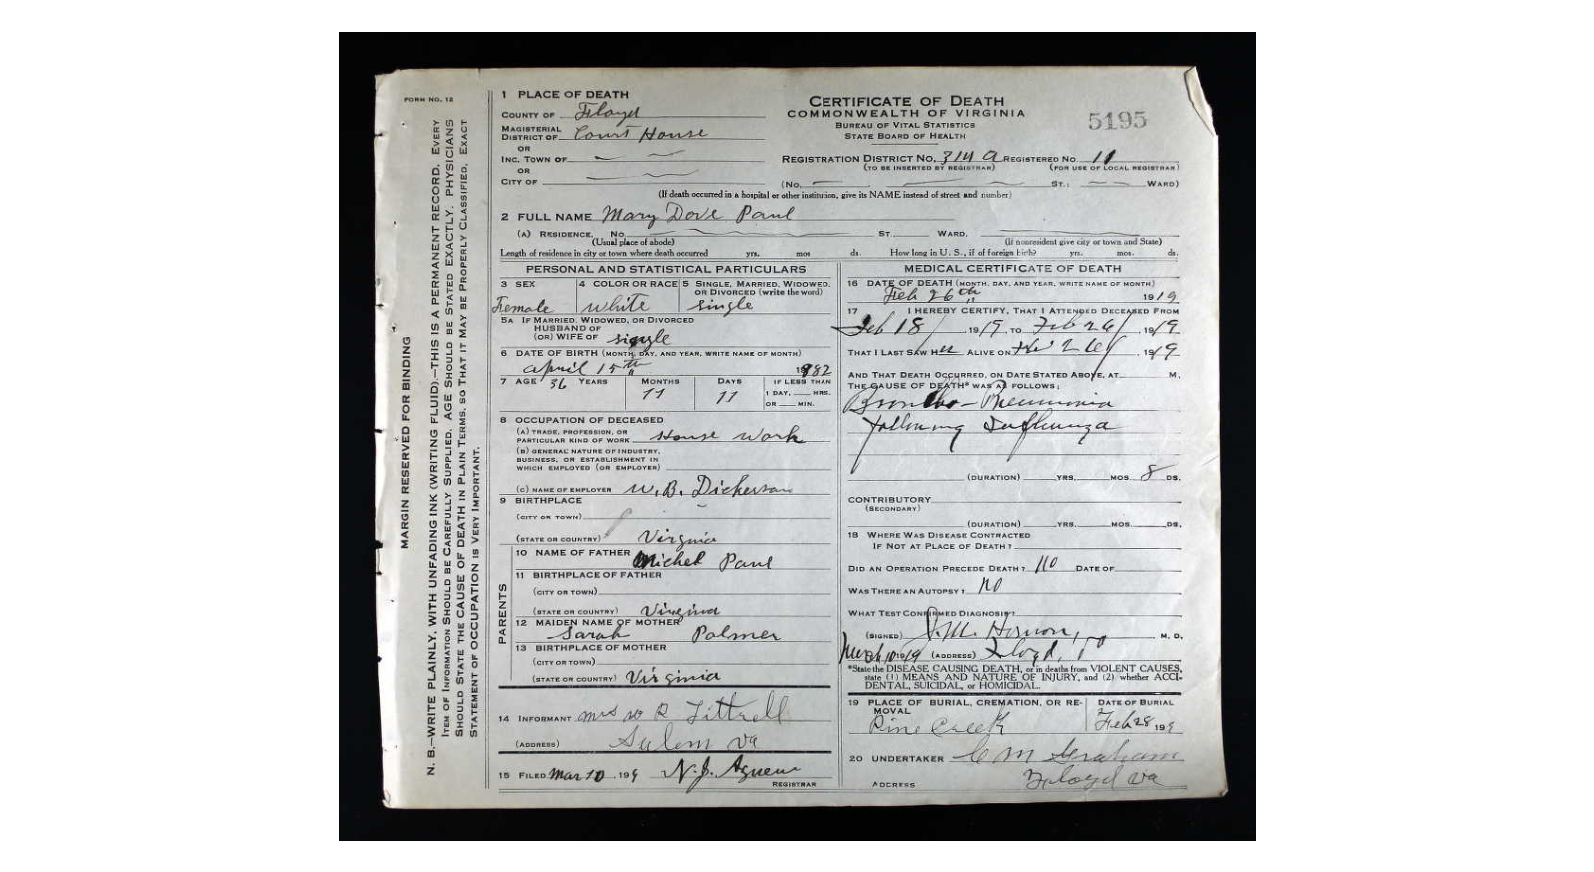 FORM NO. 12
MARGIN RESERVED FOR BINDING
N. B.—WRITE PLAINLY, WITH UNFADING INK (WRITING FLUID).—THIS IS A PERMANENT RECORD. EVERY
ITEM OF INFORMATION SHOULD BE CAREFULLY SUPPLIED. AGE SHOULD BE STATED EXACTLY. PHYSICIANS
SHOULD STATE THE CAUSE OF DEATH IN PLAIN TERMS, SO THAT IT MAY BE PROPERLY CLASSIFIED. EXACT
STATEMENT OF OCCUPATION IS VERY IMPORTANT.
1 PLACE OF DEATH
COUNTY OF Floyd
MAGISTERIAL
DISTRICT OF Court House
OR
INC. TOWN OF
OR
CITY OF
CERTIFICATE OF DEATH
COMMONWEALTH OF VIRGINIA
BUREAU OF VITAL STATISTICS
STATE BOARD OF HEALTH
5195
REGISTRATION DISTRICT NO. 314 A REGISTERED NO. 11
(TO BE INSERTED BY REGISTRAR) (FOR USE OF LOCAL REGISTRAR)
(NO. ST.; WARD)
(If death occurred in a hospital or other institution, give its NAME instead of street and number)
2 FULL NAME Mary Dove Paul
(A) RESIDENCE, NO. ST. WARD,
(Usual place of abode) (If nonresident give city or town and State)
Length of residence in city or town where death occurred yrs. mos ds. How long in U. S., if of foreign birth? yrs. mos. ds.
PERSONAL AND STATISTICAL PARTICULARS
3 SEX 4 COLOR OR RACE 5 SINGLE, MARRIED, WIDOWED,
OR DIVORCED (write the word)
Female white single
5A IF MARRIED, WIDOWED, OR DIVORCED
HUSBAND OF
(OR) WIFE OF single
6 DATE OF BIRTH (MONTH, DAY, AND YEAR, WRITE NAME OF MONTH)
april 15th 1882
7 AGE 36 YEARS MONTHS DAYS IF LESS THAN
11 11 1 DAY, HRS.
OR MIN.
8 OCCUPATION OF DECEASED
(A) TRADE, PROFESSION, OR
PARTICULAR KIND OF WORK House work
(B) GENERAL NATURE OF INDUSTRY,
BUSINESS, OR ESTABLISHMENT IN
WHICH EMPLOYED (OR EMPLOYER)
(C) NAME OF EMPLOYER W. B. Dickerson
9 BIRTHPLACE
(CITY OR TOWN)
(STATE OR COUNTRY) Virginia
PARENTS
10 NAME OF FATHER Michel Paul
11 BIRTHPLACE OF FATHER
(CITY OR TOWN)
(STATE OR COUNTRY) Virginia
12 MAIDEN NAME OF MOTHER
Sarah Palmer
13 BIRTHPLACE OF MOTHER
(CITY OR TOWN)
(STATE OR COUNTRY) Virginia
14 INFORMANT Mrs W R Littrell
(ADDRESS) Salem Va
15 FILED Mar 10 191 9 N. J. Agnew
REGISTRAR
MEDICAL CERTIFICATE OF DEATH
16 DATE OF DEATH (MONTH, DAY, AND YEAR, WRITE NAME OF MONTH)
Feb 26th 1919
17 I HEREBY CERTIFY, THAT I ATTENDED DECEASED FROM
Feb 18 1919 TO Feb 26 1919
THAT I LAST SAW Her ALIVE ON Feb 26 1919
AND THAT DEATH OCCURRED, ON DATE STATED ABOVE, AT M.
THE CAUSE OF DEATH* WAS AS FOLLOWS:
Broncho-Pneumonia
following Influenza
(DURATION) YRS. MOS 8 DS.
CONTRIBUTORY
(SECONDARY)
(DURATION) YRS. MOS. DS.
18 WHERE WAS DISEASE CONTRACTED
IF NOT AT PLACE OF DEATH?
DID AN OPERATION PRECEDE DEATH? NO DATE OF
WAS THERE AN AUTOPSY? NO
WHAT TEST CONFIRMED DIAGNOSIS?
(SIGNED) M. D.
March 10 1919 (ADDRESS) Floyd,
*State the DISEASE CAUSING DEATH, or in deaths from VIOLENT CAUSES,
state (1) MEANS AND NATURE OF INJURY, and (2) whether ACCI-
DENTAL, SUICIDAL, or HOMICIDAL.
19 PLACE OF BURIAL, CREMATION, OR RE- DATE OF BURIAL
MOVAL
Pine Creek Feb 28 191 9
20 UNDERTAKER C M Graham
ADDRESS Floyd Va